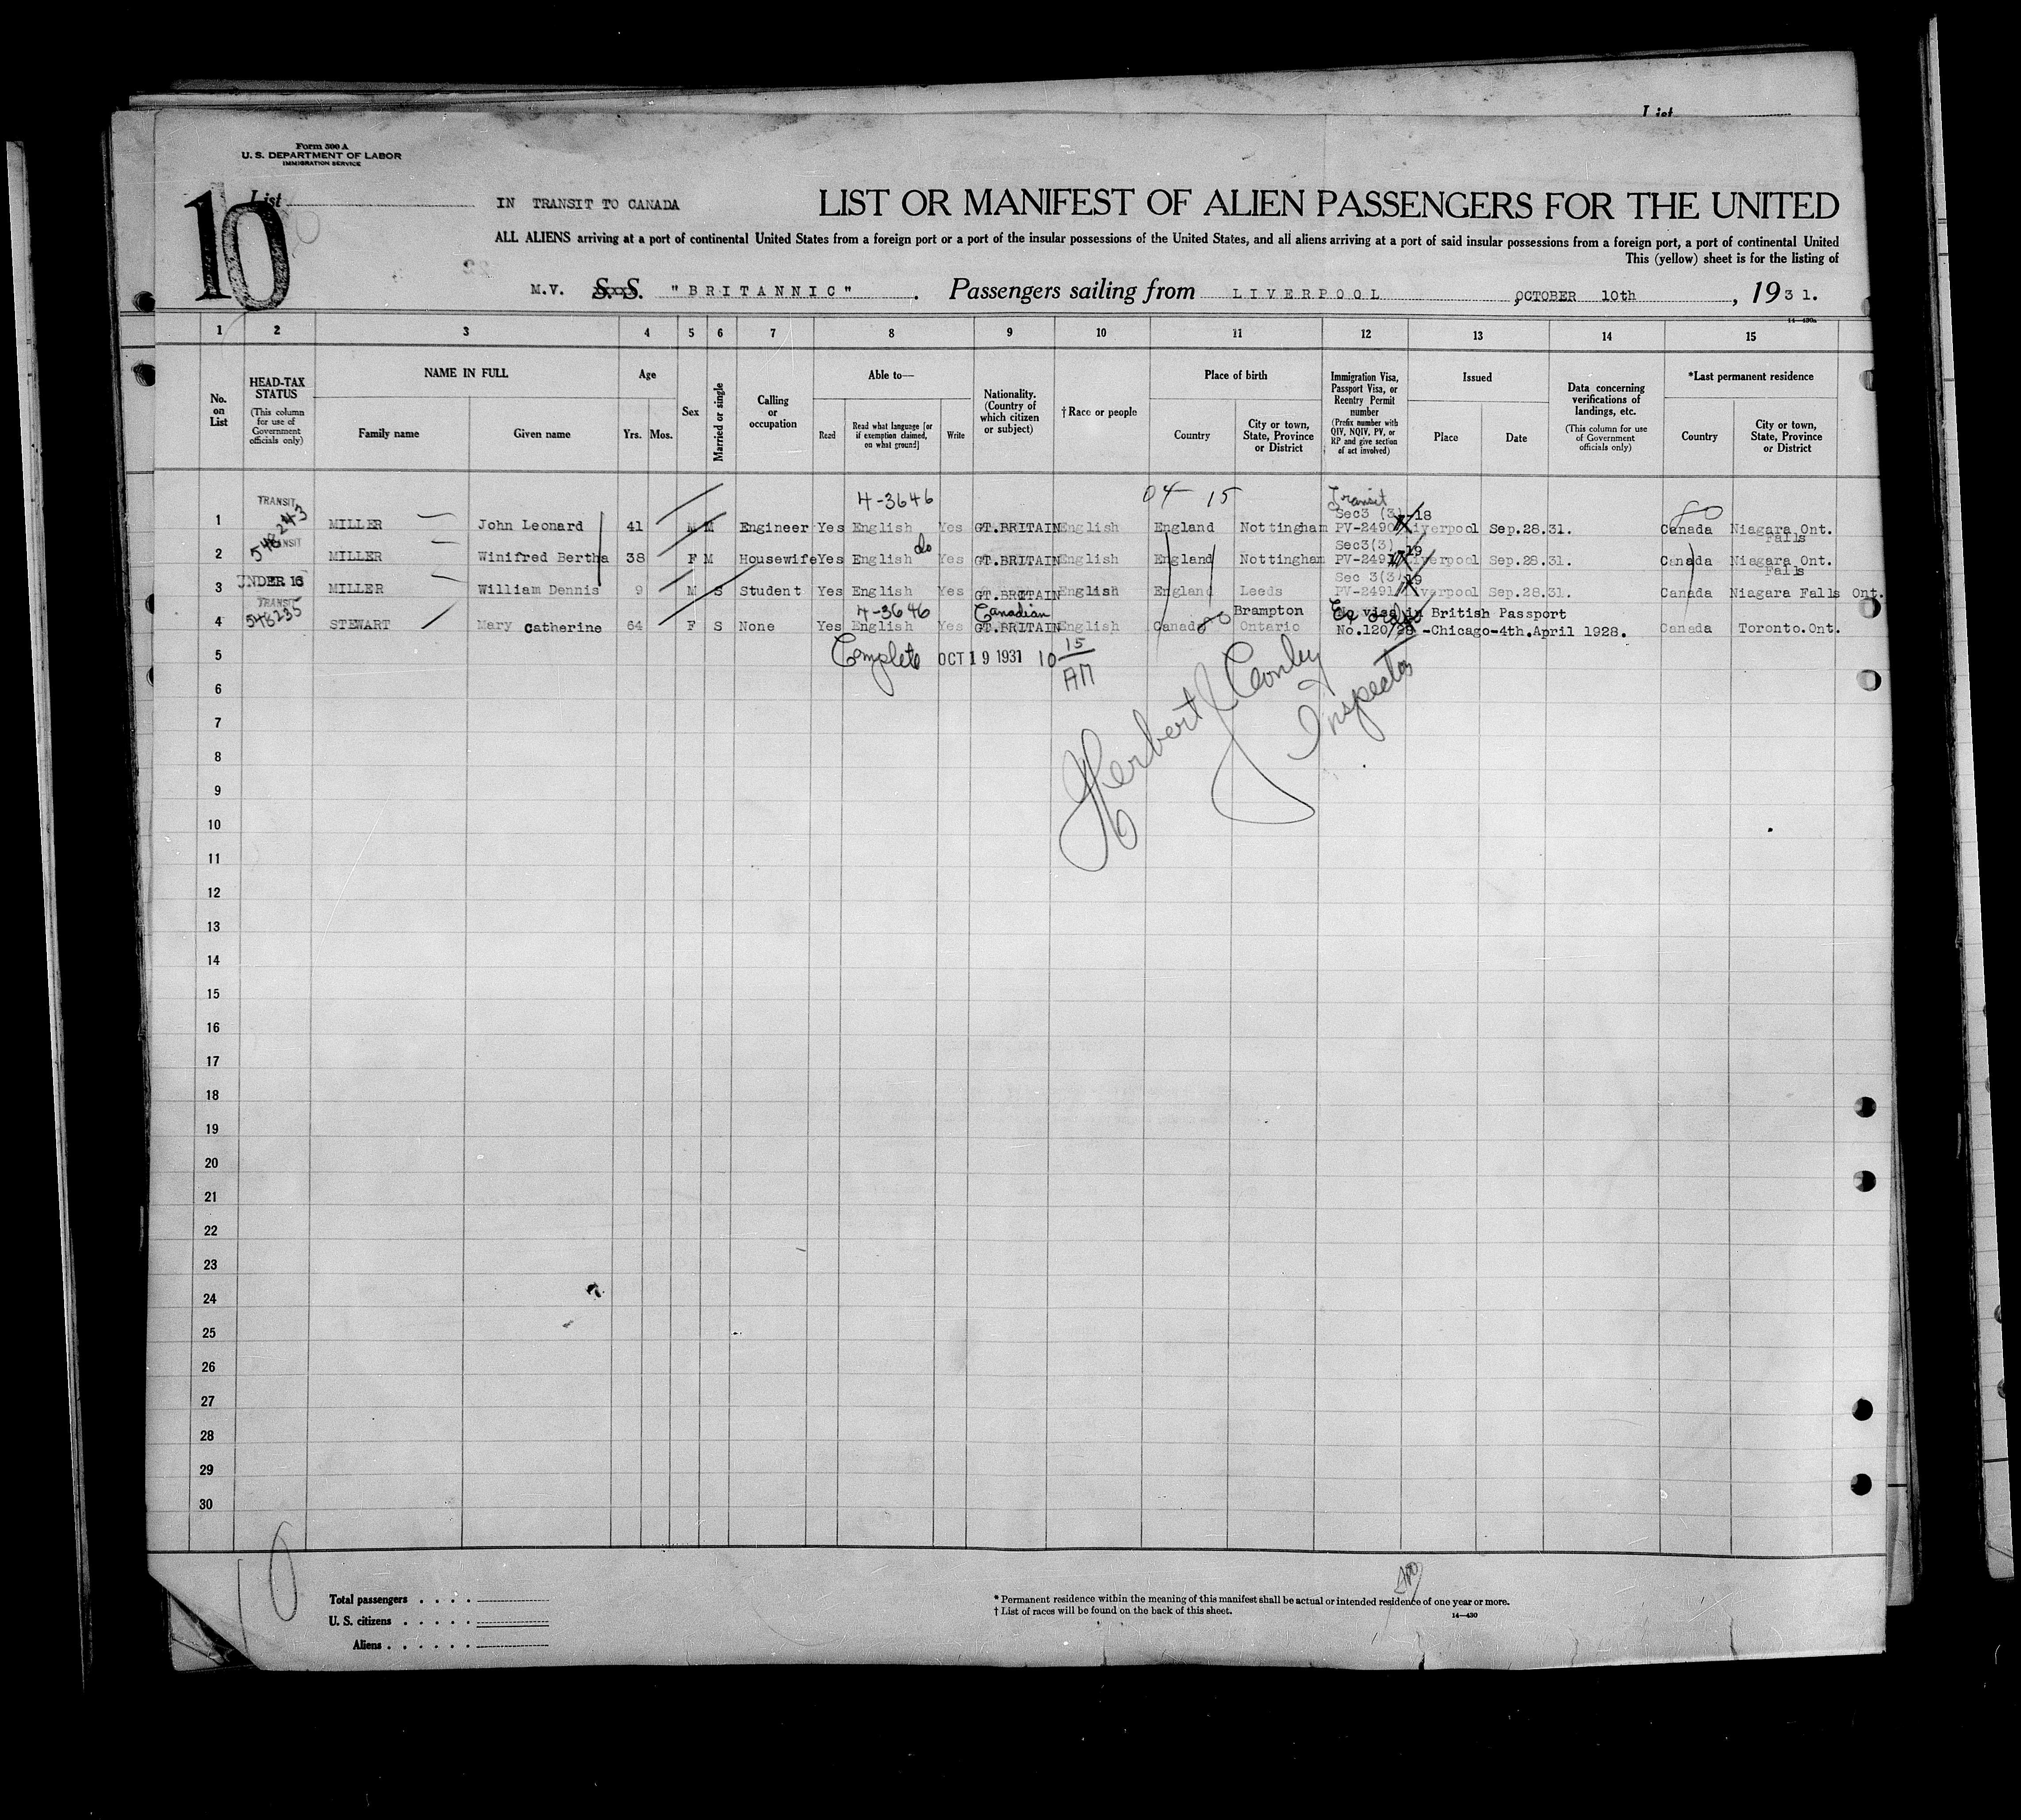 List
Form 500 A
U. S. DEPARTMENT OF LABOR
IMMIGRATION SERVICE
10
List
IN TRANSIT TO CANADA
LIST OR MANIFEST OF ALIEN PASSENGERS FOR THE UNITED
ALL ALIENS arriving at a port of continental United States from a foreign port or a port of the insular possessions of the United States, and all aliens arriving at a port of said insular possessions from a foreign port, a port of continental United
This (yellow) sheet is for the listing of
M.V. S.S. "BRITANNIC". Passengers sailing from LIVERPOOL, OCTOBER 10th, 1931.
14—430a
1 2 3 4 5 6 7 8 9 10 11 12 13 14 15
No. on List
HEAD-TAX STATUS
(This column for use of Government officials only)
NAME IN FULL
Family name
Given name
Age
Yrs. Mos.
Sex
Married or single
Calling or occupation
Able to—
Read
Read what language [or if exemption claimed, on what ground]
Write
Nationality. (Country of which citizen or subject)
†Race or people
Place of birth
Country
City or town, State, Province or District
Immigration Visa, Passport Visa, or Reentry Permit number
(Prefix number with QIV, NQIV, PV, or RP and give section of act involved)
Issued
Place
Date
Data concerning verifications of landings, etc.
(This column for use of Government officials only)
*Last permanent residence
Country
City or town, State, Province or District
TRANSIT 4-3646 04-15 Transit
Sec3 (3) 18
1 548243 MILLER John Leonard 41 M M Engineer Yes English Yes GT.BRITAIN English England Nottingham PV-2490 Liverpool Sep.28.31. Canada Niagara Ont.
TRANSIT Sec3(3) 19 Falls
2 MILLER Winifred Bertha 38 F M Housewife Yes English do Yes GT.BRITAIN English England Nottingham PV-2491 Liverpool Sep.28.31. Canada Niagara Ont.
UNDER 16 Sec 3(3) 19 Falls
3 MILLER William Dennis 9 M S Student Yes English Yes GT.BRITAIN English England Leeds PV-2491 Liverpool Sep.28.31. Canada Niagara Falls Ont.
TRANSIT 4-3646 Canadian Brampton No visa in British Passport
4 548235 STEWART Mary Catherine 64 F S None Yes English Yes GT.BRITAIN English Canada Ontario No.120/28 -Chicago-4th.April 1928. Canada Toronto.Ont.
5 Complete OCT 19 1931 10 15 AM
Herbert J Conley
Inspector
6
7
8
9
10
11
12
13
14
15
16
17
18
19
20
21
22
23
24
25
26
27
28
29
30
Total passengers . . . .
U. S. citizens . . . . .
Aliens . . . . . .
* Permanent residence within the meaning of this manifest shall be actual or intended residence of one year or more.
† List of races will be found on the back of this sheet.
14—430